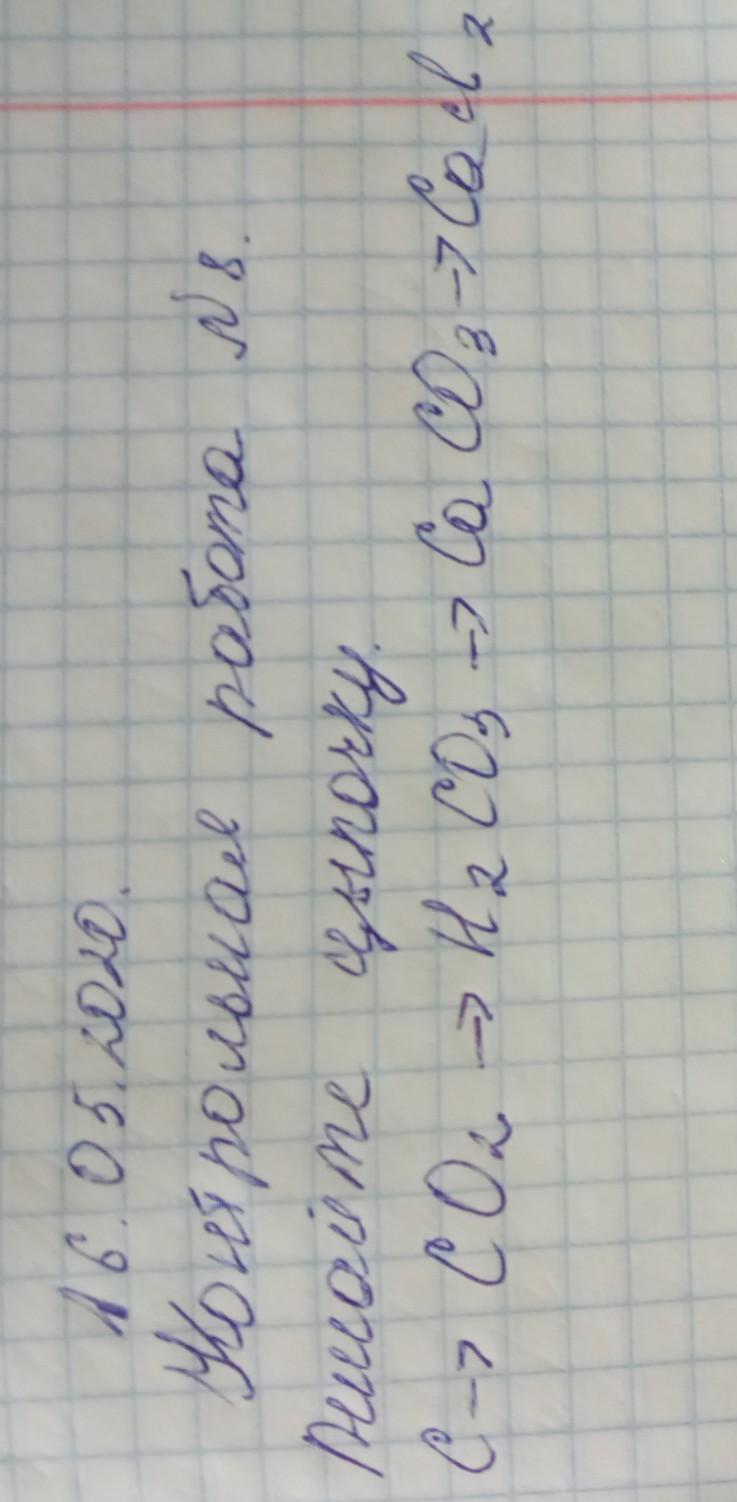 16.05.2020.
Контрольная работа № 8.
Решайте цыпочку.
C → CO₂ → H₂CO₃ → CaCO₃ → CaCl₂